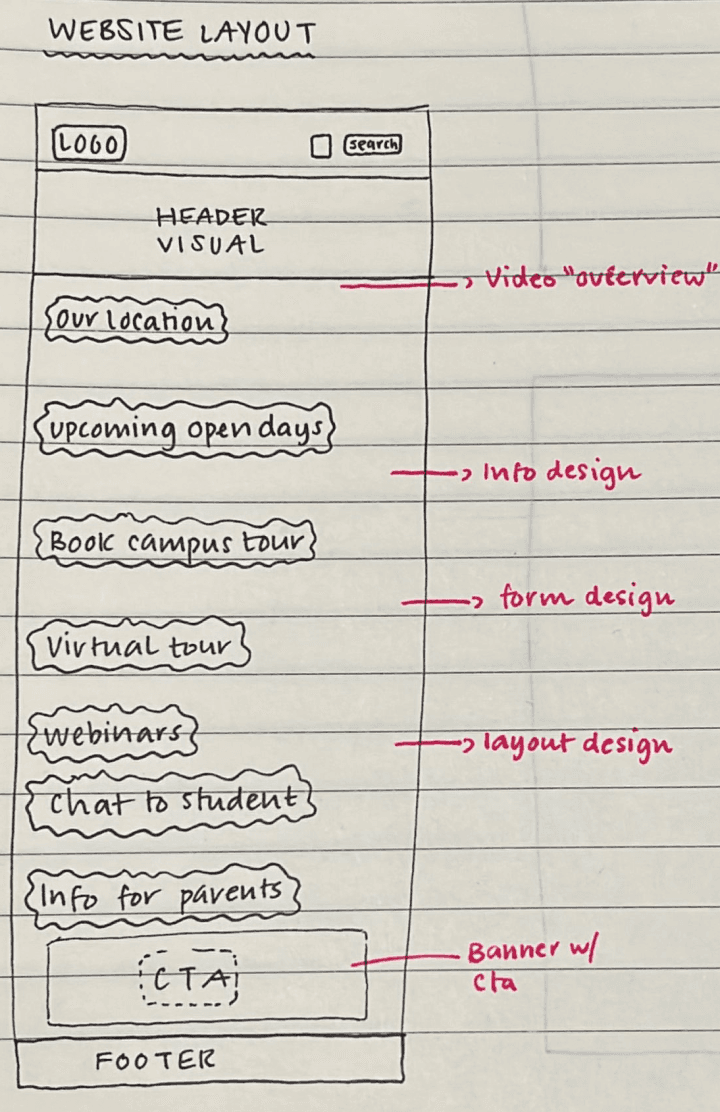 WEBSITE LAYOUT
LOGO
search
HEADER
VISUAL
Video "overview"
Our location
upcoming open days
Info design
Book campus tour
form design
Virtual tour
Webinars
layout design
Chat to student
Info for parents
Banner w/
cta
CTA
FOOTER